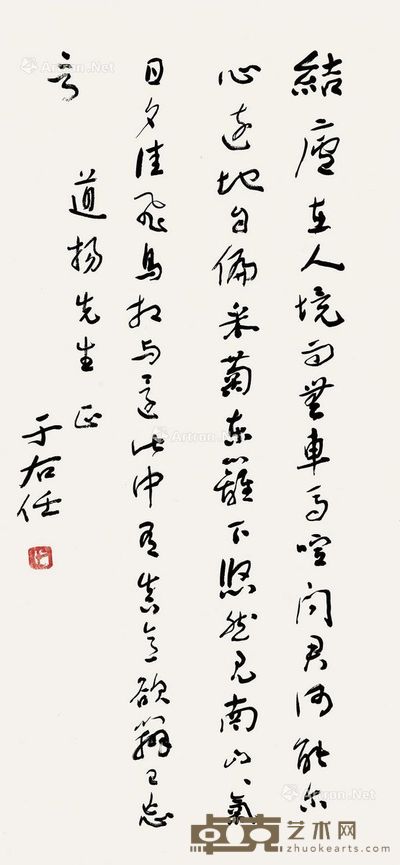 結廬在人境而無車馬喧問君何能尔
心遠地自偏采菊東籬下悠然見南山山氣
日夕佳飛鳥相與還此中有真意欲辨已忘
言
道揚先生正
于右任
Artron.Net
卓克艺术网
zhuokearts.com